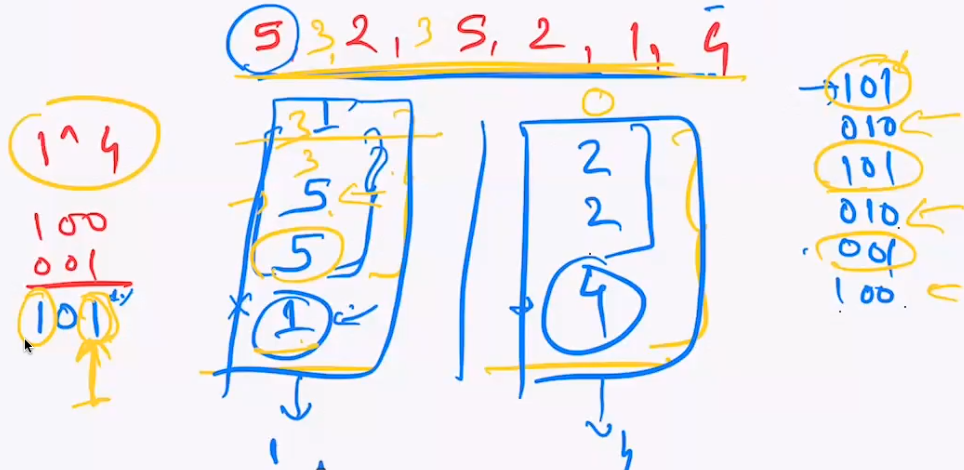 5 3, 2, 3 5, 2, 1, 4
1 ^ 4
100
001
101
3 1
3
5
5
1
1
0
2
2
4
4
101
010
101
010
001
100